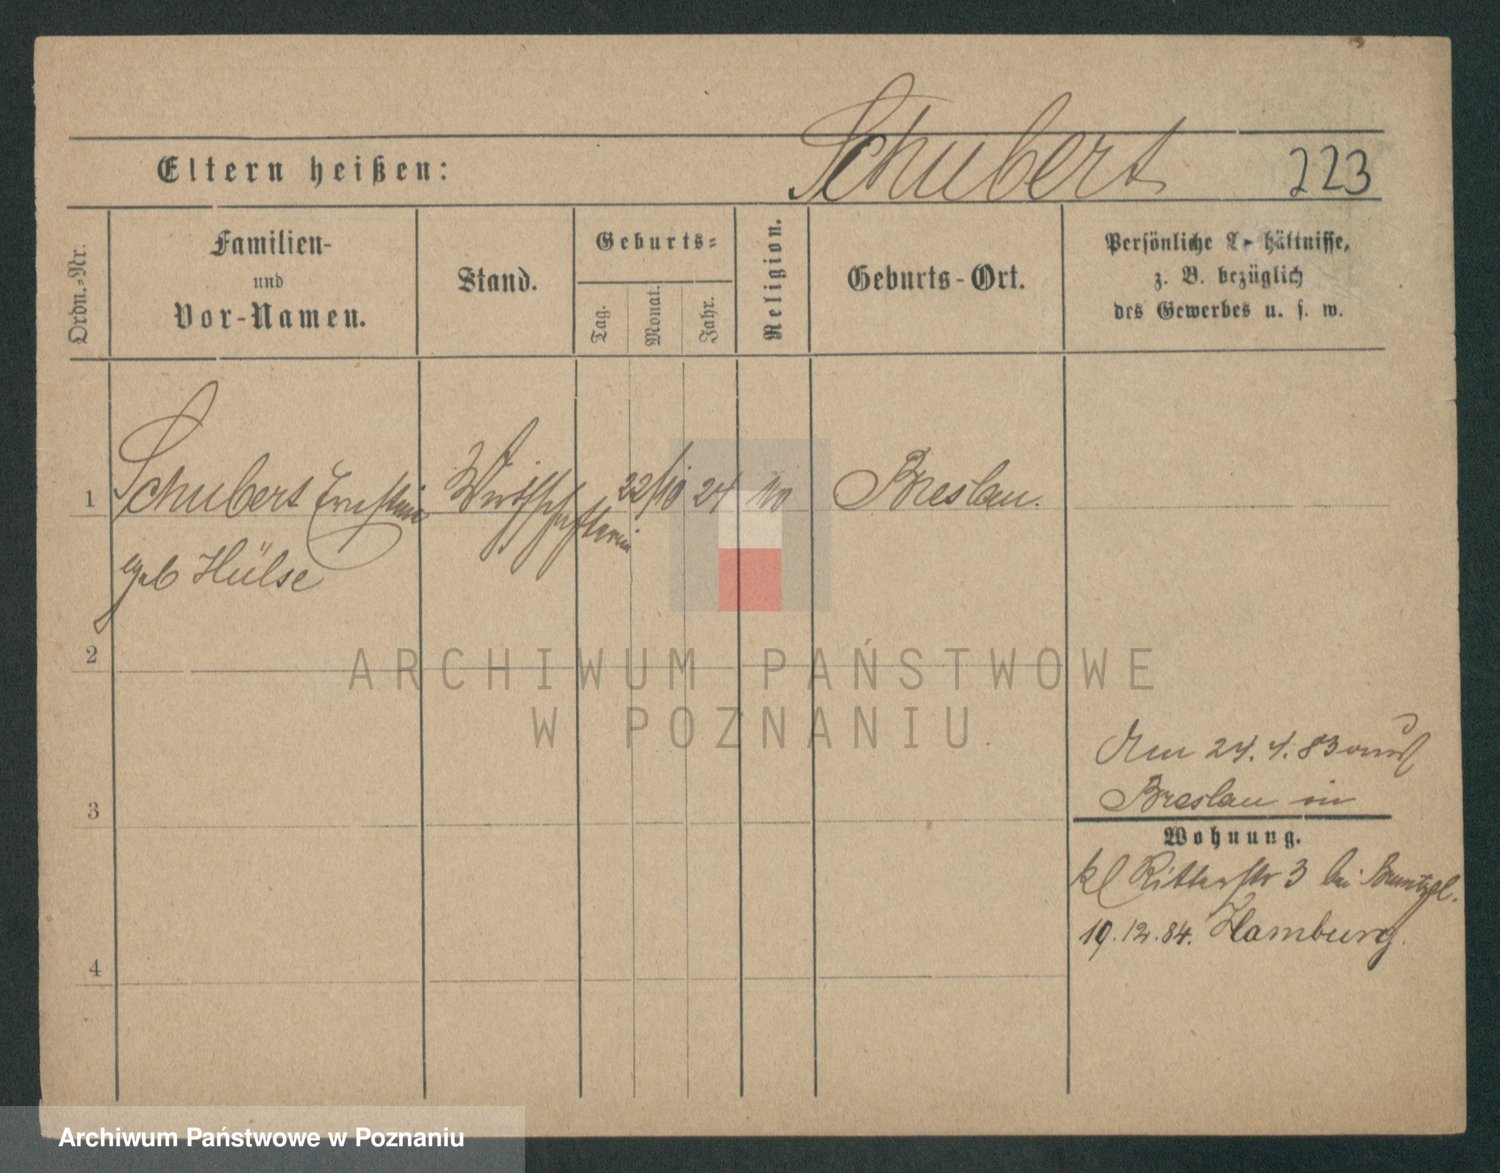 Schubert
Eltern heißen:
223
Ordn.-Nr.
Familien-
und
Vor-Namen.
Stand.
Geburts-
Tag.
Monat.
Jahr.
Religion.
Geburts-Ort.
Persönliche Verhältnisse,
z. B. bezüglich
des Gewerbes u. s. w.
1
Schubert Ernstine
geb Hülse
Wirthschafterin
22/10 24
Breslau.
2
3
4
Am 24. 4. 83 aus
Breslau in
Wohnung.
kl Ritterstr 3 bei
19.12.84. Hamburg.
ARCHIWUM PAŃSTWOWE
W POZNANIU
Archiwum Państwowe w Poznaniu